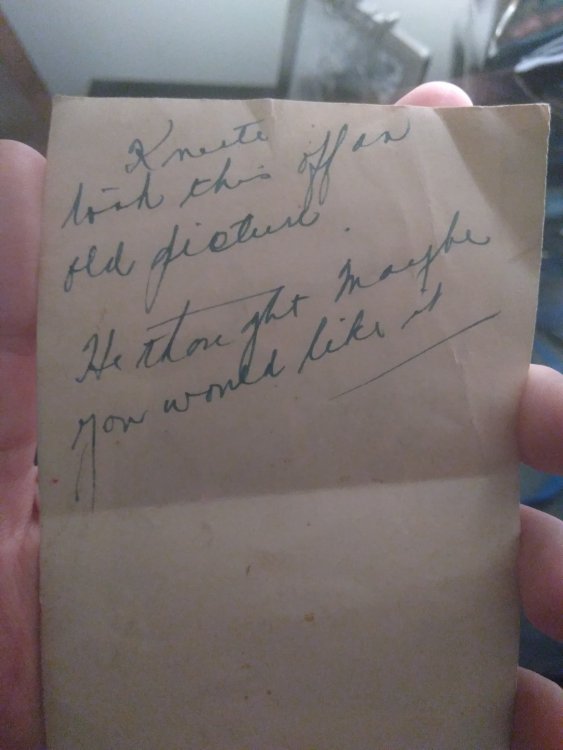 Kneete
took this off an
old picture.
He thought Maybe
you would like it